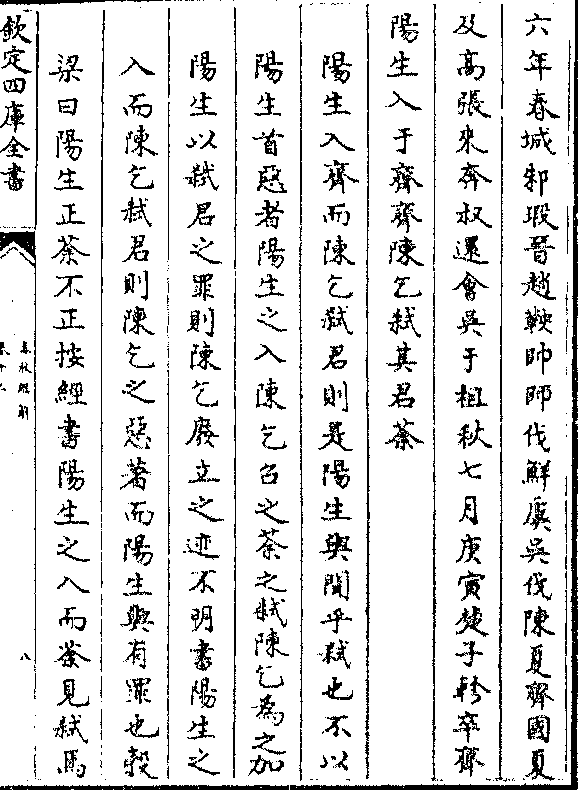 六年春城邾瑕晉趙鞅帥師伐鮮虞吳伐陳夏齊國夏
及高張來奔叔還會吳于柤秋七月庚寅楚子軫卒齊
陽生入于齊齊陳乞弑其君荼
陽生入齊而陳乞弑君則是陽生與聞乎弑也不以
陽生首惡者陽生之入陳乞召之荼之弑陳乞為之加
陽生以弑君之罪則陳乞廢立之迹不明書陽生之
入而陳乞弑君則陳乞之惡著而陽生與有罪也穀
梁曰陽生正荼不正按經書陽生之入而荼見弑焉
欽定四庫全書
春秋經解
卷十二
八